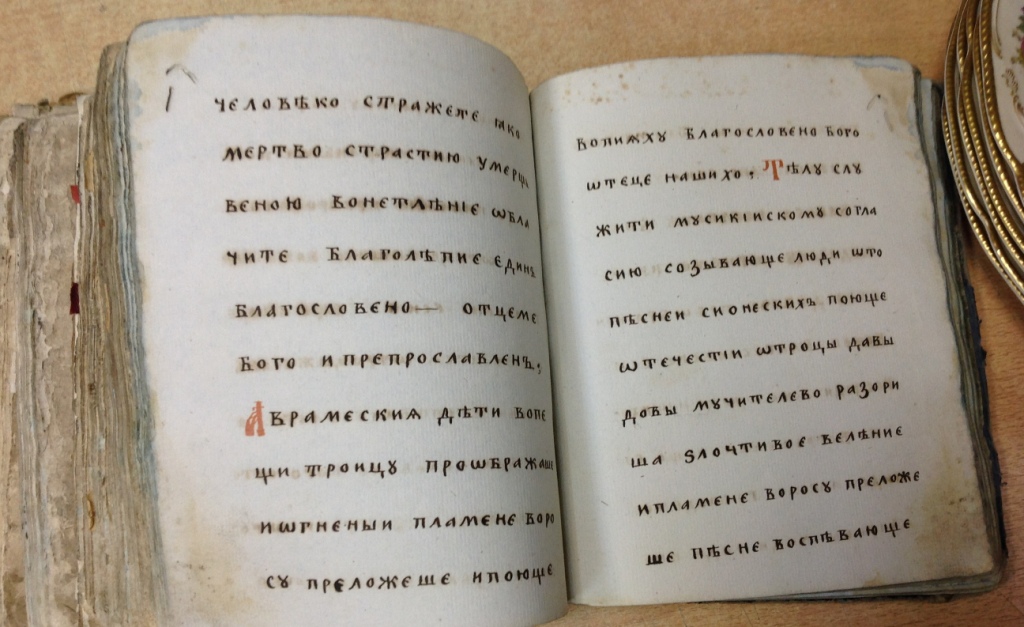 человѣко стражете ꙗко
мертво страстию умерщв
веною вонетлѣніе ѡбла
чите благолѣпие единъ
благословено — отцеме
бого и препрославленъ,
Аврамеския дѣти вопе
щи троицу прошвражаше
иѡгненыи пламене воро
су преложеше ипоюще
вопиѧху благословено бого
ѡтеце нашихо, Тѣлу слу
жити мусикіискому согла
сию созывающе люди што
пѣснеи сионескихъ поюще
ѡтечестіи ѡтроцы давы
довы мучителево разори
ша злочтивое велѣние
ипламене воросу преложе
ше пѣсне воспѣвающе